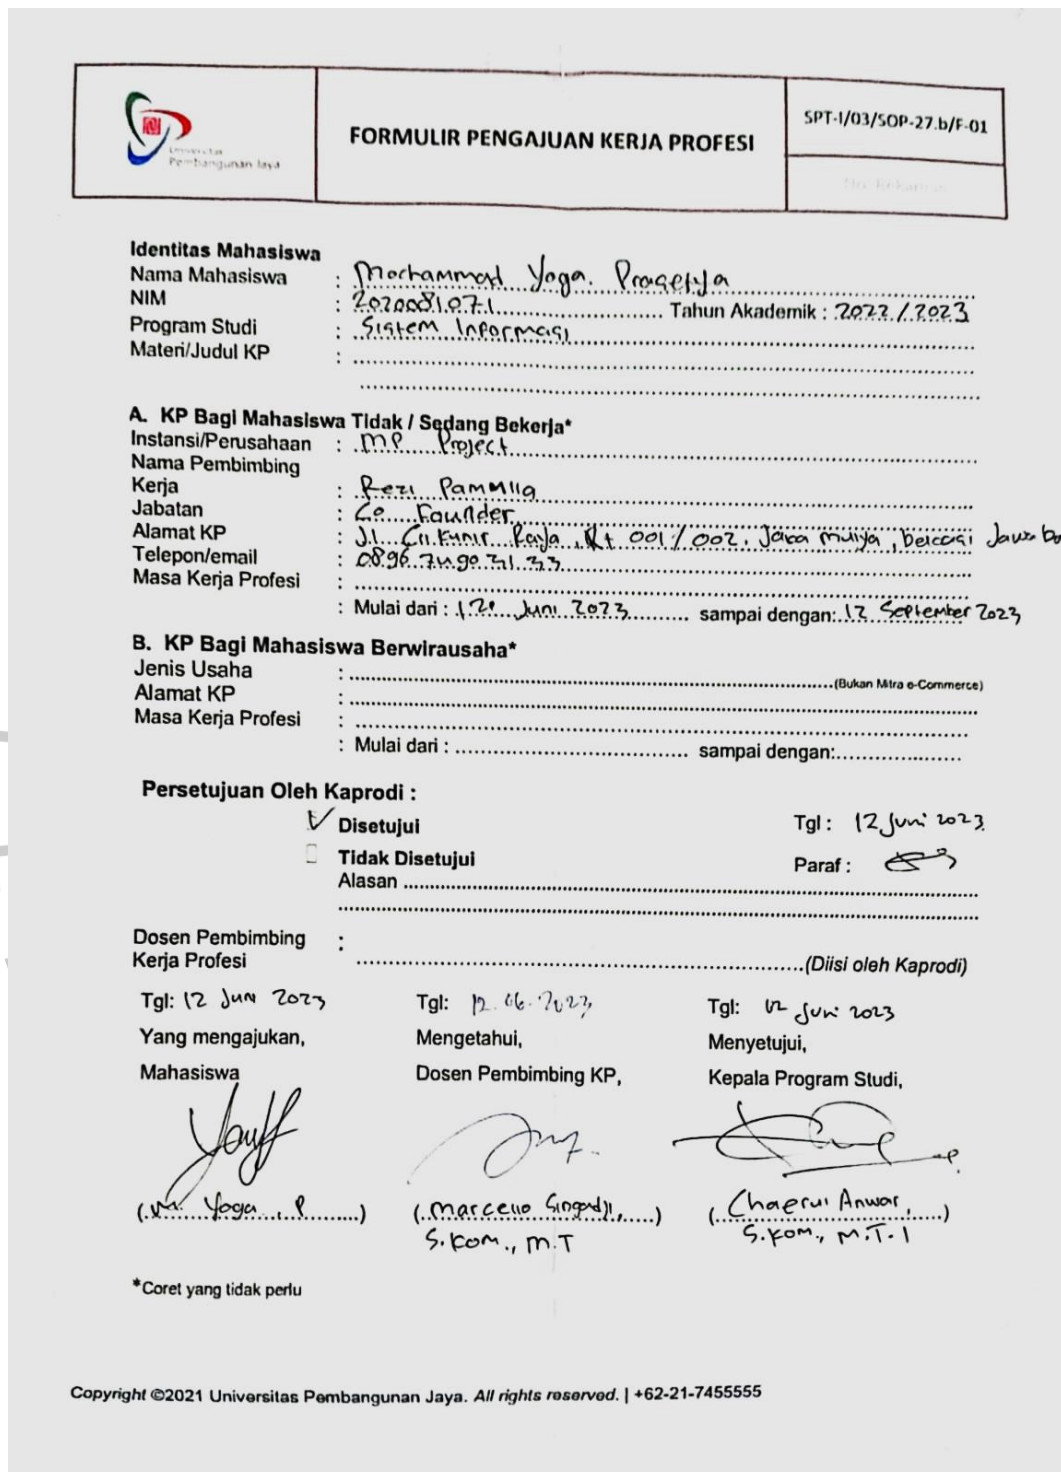 Universitas
Pembangunan Jaya
FORMULIR PENGAJUAN KERJA PROFESI
SPT-I/03/SOP-27.b/F-01
Identitas Mahasiswa
Nama Mahasiswa : Mochammad Yoga Prasetya
NIM : 2020081071 Tahun Akademik : 2022/2023
Program Studi : Sistem Informasi
Materi/Judul KP :
A. KP Bagi Mahasiswa Tidak / Sedang Bekerja*
Instansi/Perusahaan : MP Project
Nama Pembimbing
Kerja : Rezi Pammila
Jabatan : Co Founder
Alamat KP : Jl. Raya, Rt 001/002, Jawa
Telepon/email :
Masa Kerja Profesi
: Mulai dari : 12 Juni 2023 sampai dengan: 12 September 2023
B. KP Bagi Mahasiswa Berwirausaha*
Jenis Usaha : (Bukan Mitra e-Commerce)
Alamat KP :
Masa Kerja Profesi :
: Mulai dari : sampai dengan:
Persetujuan Oleh Kaprodi :
Disetujui Tgl : 12 Juni 2023
Tidak Disetujui Paraf :
Alasan
Dosen Pembimbing :
Kerja Profesi (Diisi oleh Kaprodi)
Tgl: 12 Juni 2023 Tgl: 12.06.2023 Tgl: 12 Juni 2023
Yang mengajukan, Mengetahui, Menyetujui,
Mahasiswa Dosen Pembimbing KP, Kepala Program Studi,
(M. Yoga, P) (Marcello Singadji,) (Chaerul Anwar,)
S.Kom., M.T S.Kom., M.T.I
*Coret yang tidak perlu
Copyright ©2021 Universitas Pembangunan Jaya. All rights reserved. | +62-21-7455555